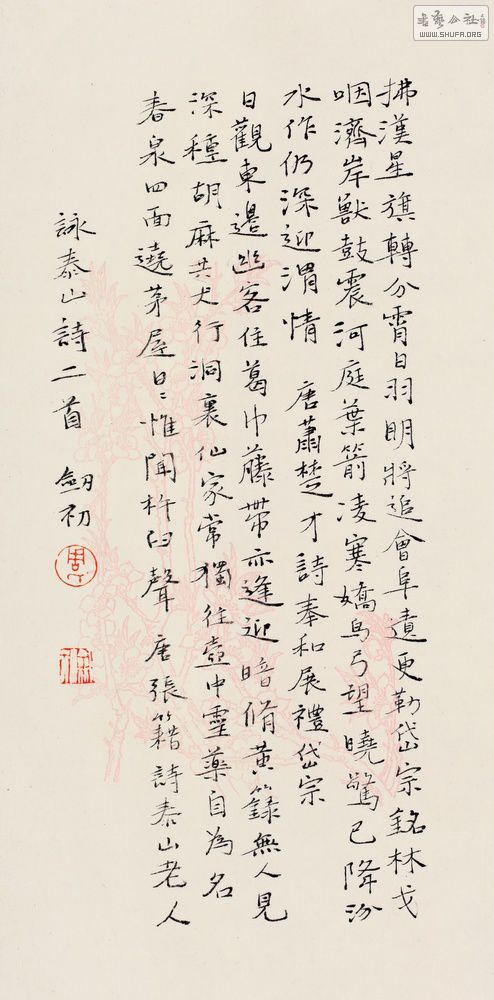 拂漢星旗轉分霄日羽明將追會阜蹟更勒岱宗銘林戈
咽濟岸獸鼓震河庭葉箭凌寒嬌烏弓望曉驚已降汾
水作仍深迎渭情 唐蕭楚才詩奉和展禮岱宗
日觀東邊幽客住葛巾藤帶亦逢迎暗脩黃籙無人見
深種胡麻共犬行洞裏仙家常獨往壺中靈藥自為名
春泉四面遶茅屋日〻惟聞杵臼聲 唐張籍詩泰山老人
詠泰山詩二首 劒初
周
WWW.SHUFA.ORG